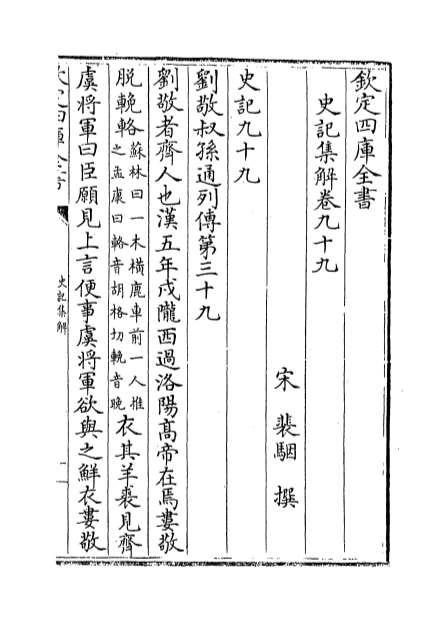 欽定四庫全書
史記集解卷九十九
宋 裴駰 撰
史記九十九
劉敬叔孫通列傳第三十九
劉敬者齊人也漢五年戍隴西過洛陽髙帝在焉婁敬
脱輓輅蘇林曰一木横鹿車前一人推之孟康曰輅音胡格切輓音晚衣其羊裘見齊
虞将軍曰臣願見上言便事虞将軍欲與之鮮衣婁敬
史記集解